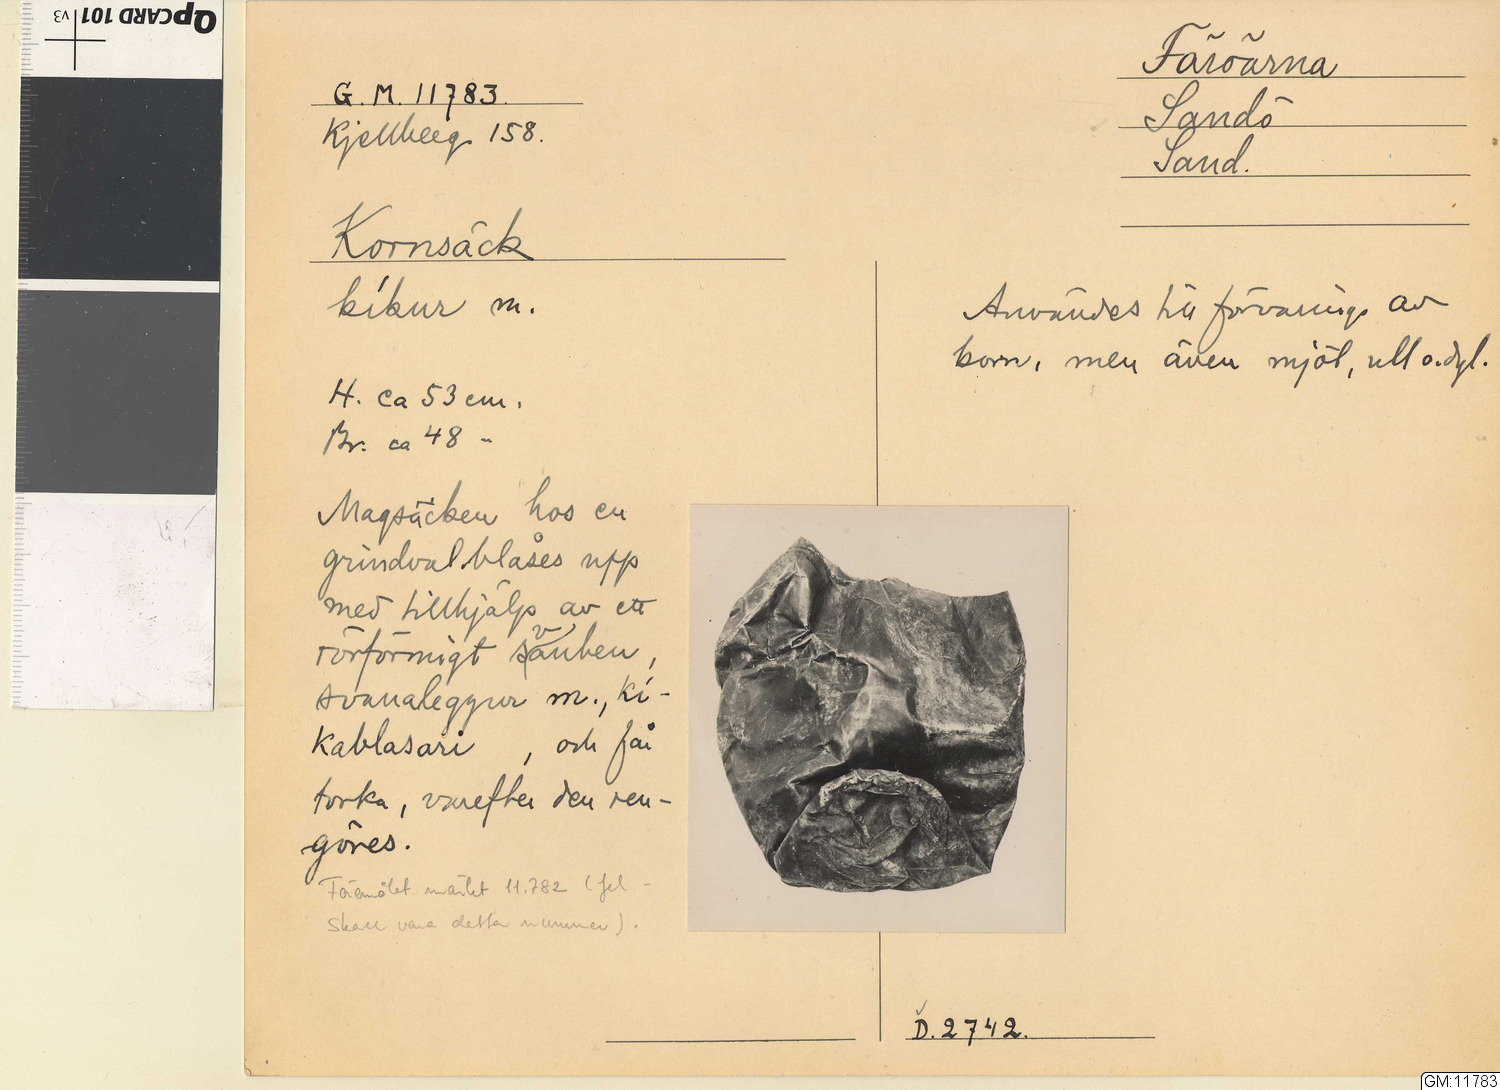 QpCARD 101 v3
G.M. 11783.
Kjellberg 158.
Färöarna
Sandö
Sand.
Kornsäck
kíkur m.
H. ca 53 cm.
Br. ca 48 "
Magsäcken hos en
grindval blåses upp
med tillhjälp av ett
rörformigt svanben,
svanaleggur m., kí-
kablasari , och får
torka, varefter den ren-
göres.
Föremålet märkt 11.782 (fel -
skall vara detta nummer).
Användes till förvaring av
korn, men även mjöl, ull o.dyl.
D.2742.
GM:11783